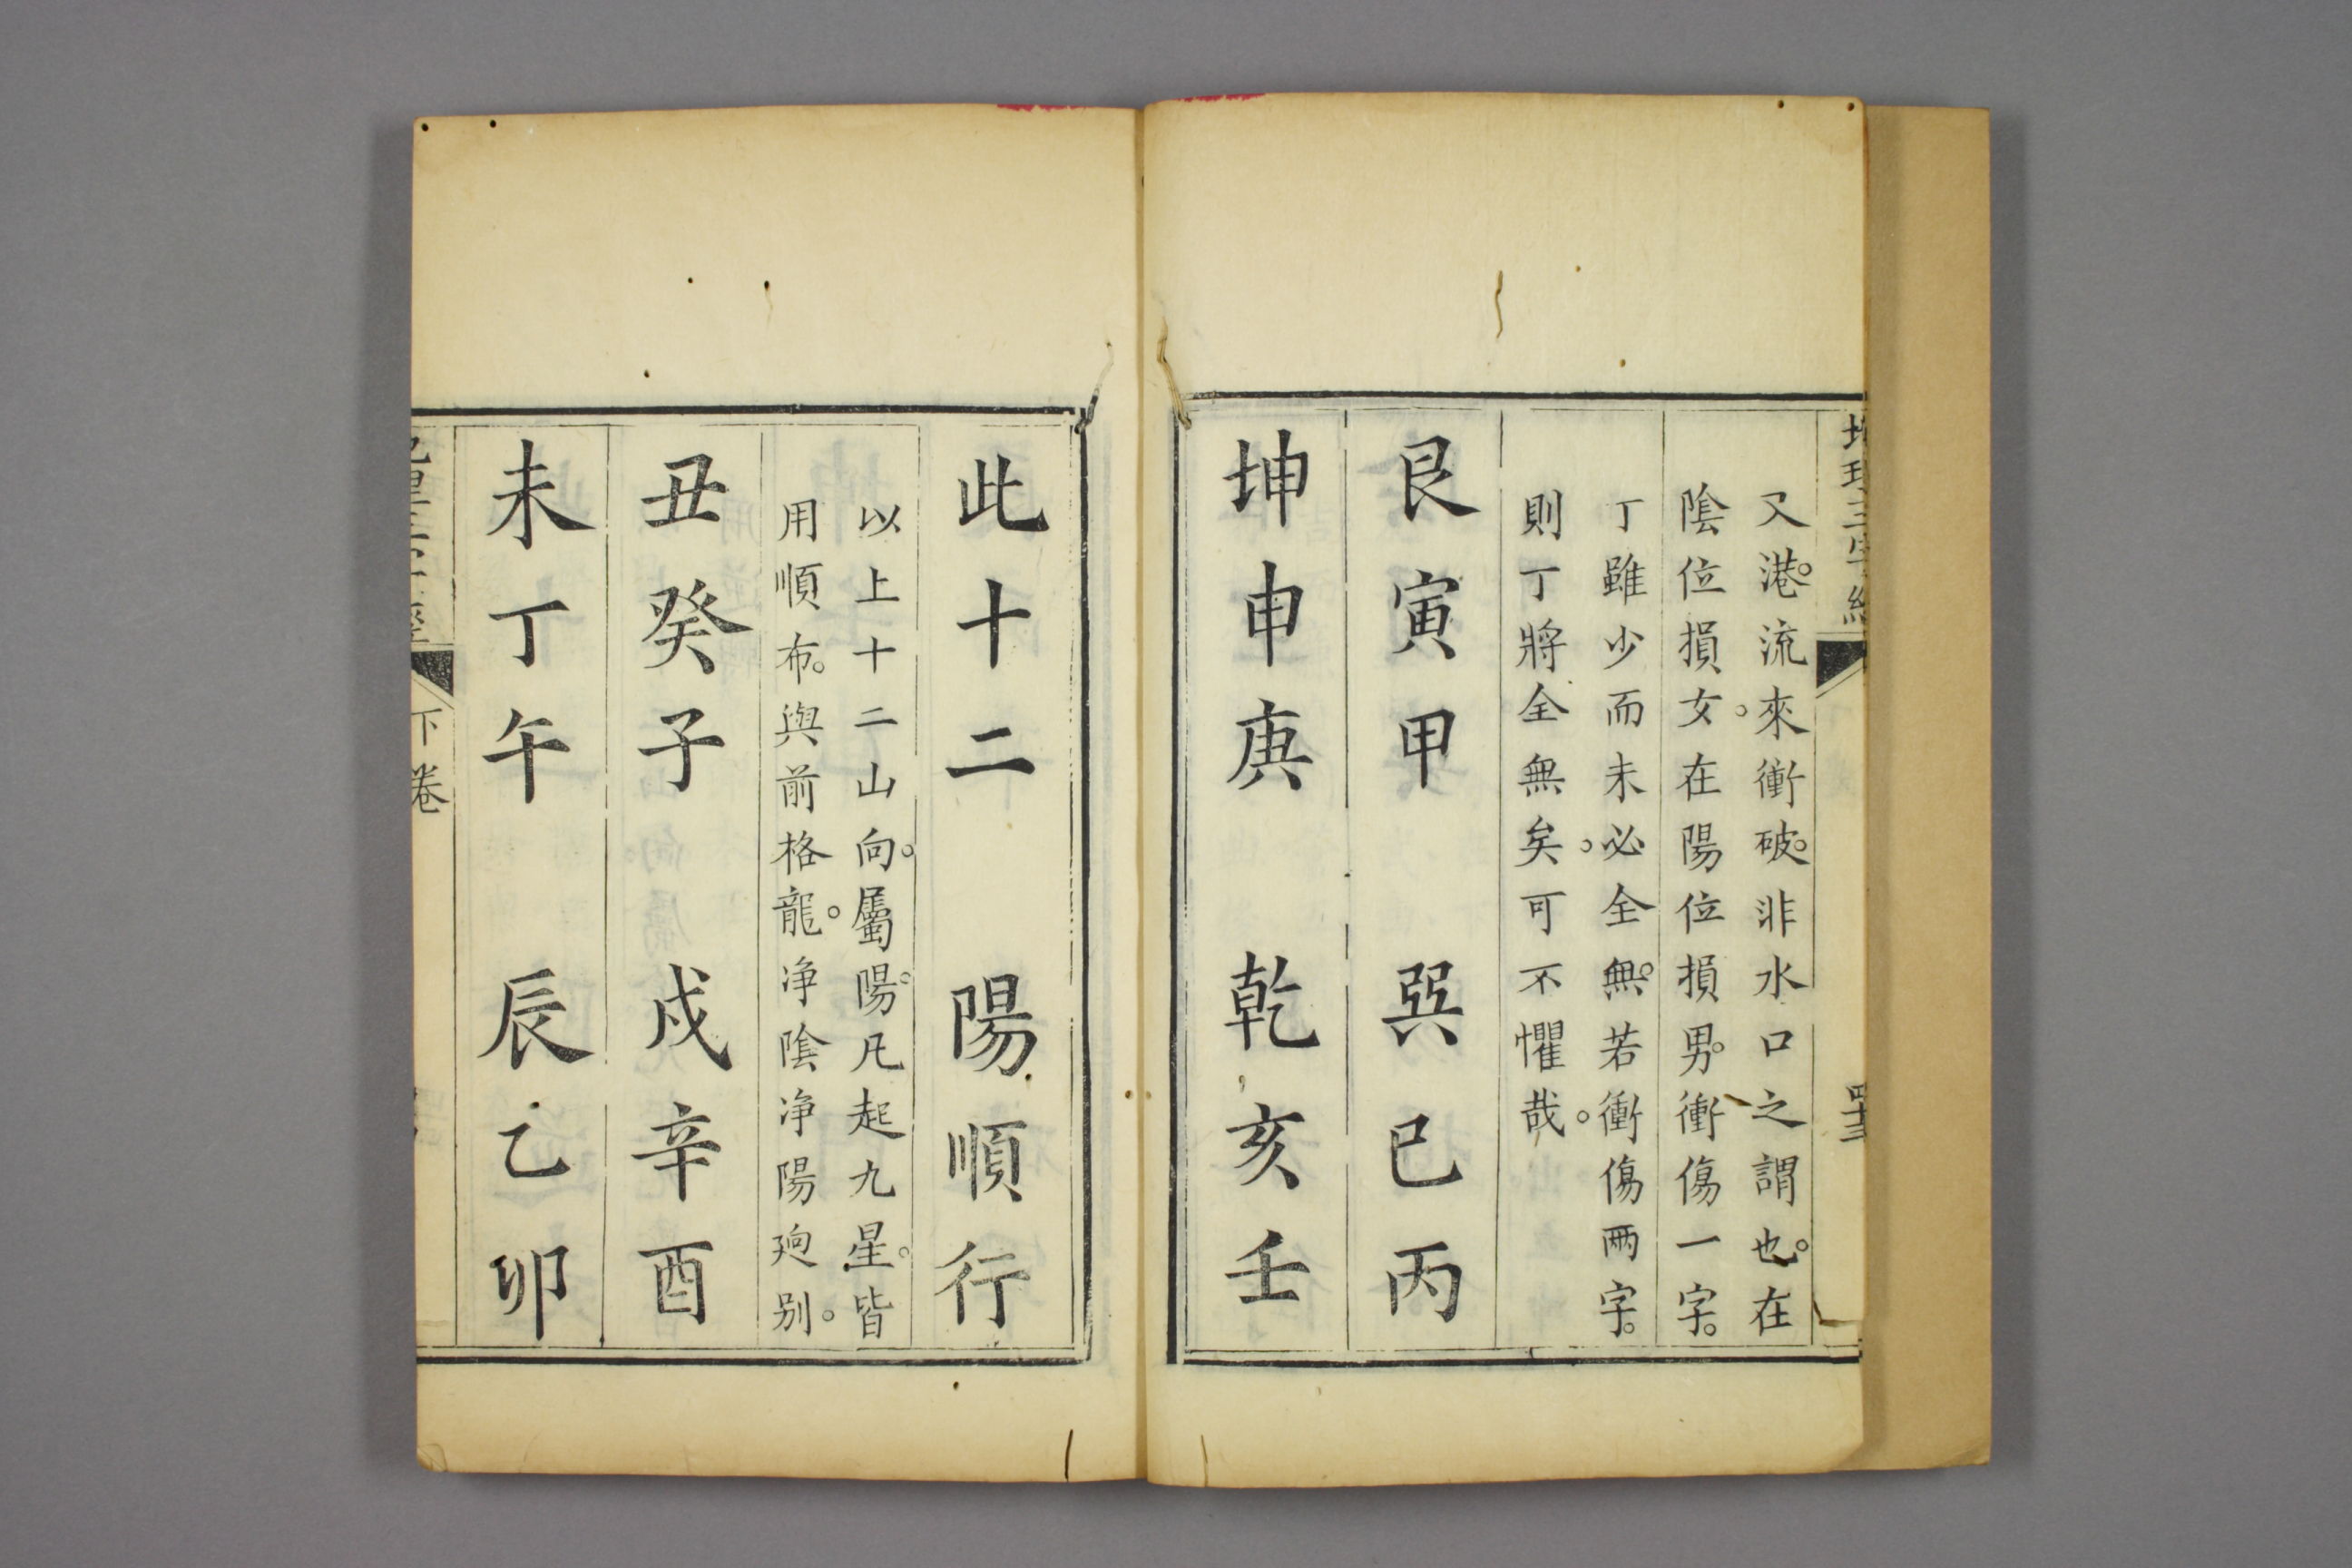 地理三字經
四十三
又港。流來衝破。非水口之謂也。在
陰位損女。在陽位損男。衝傷一字。
丁雖少而未必全無。若衝傷兩字。
則丁將全無矣。可不懼哉。
艮寅甲 巽巳丙
坤申庚 乾亥壬
此十二 陽順行
以上十二山向。屬陽。凡起九星。皆
用順布。與前格龍。净陰净陽逈别。
丑癸子 戌辛酉
未丁午 辰乙卯
下卷